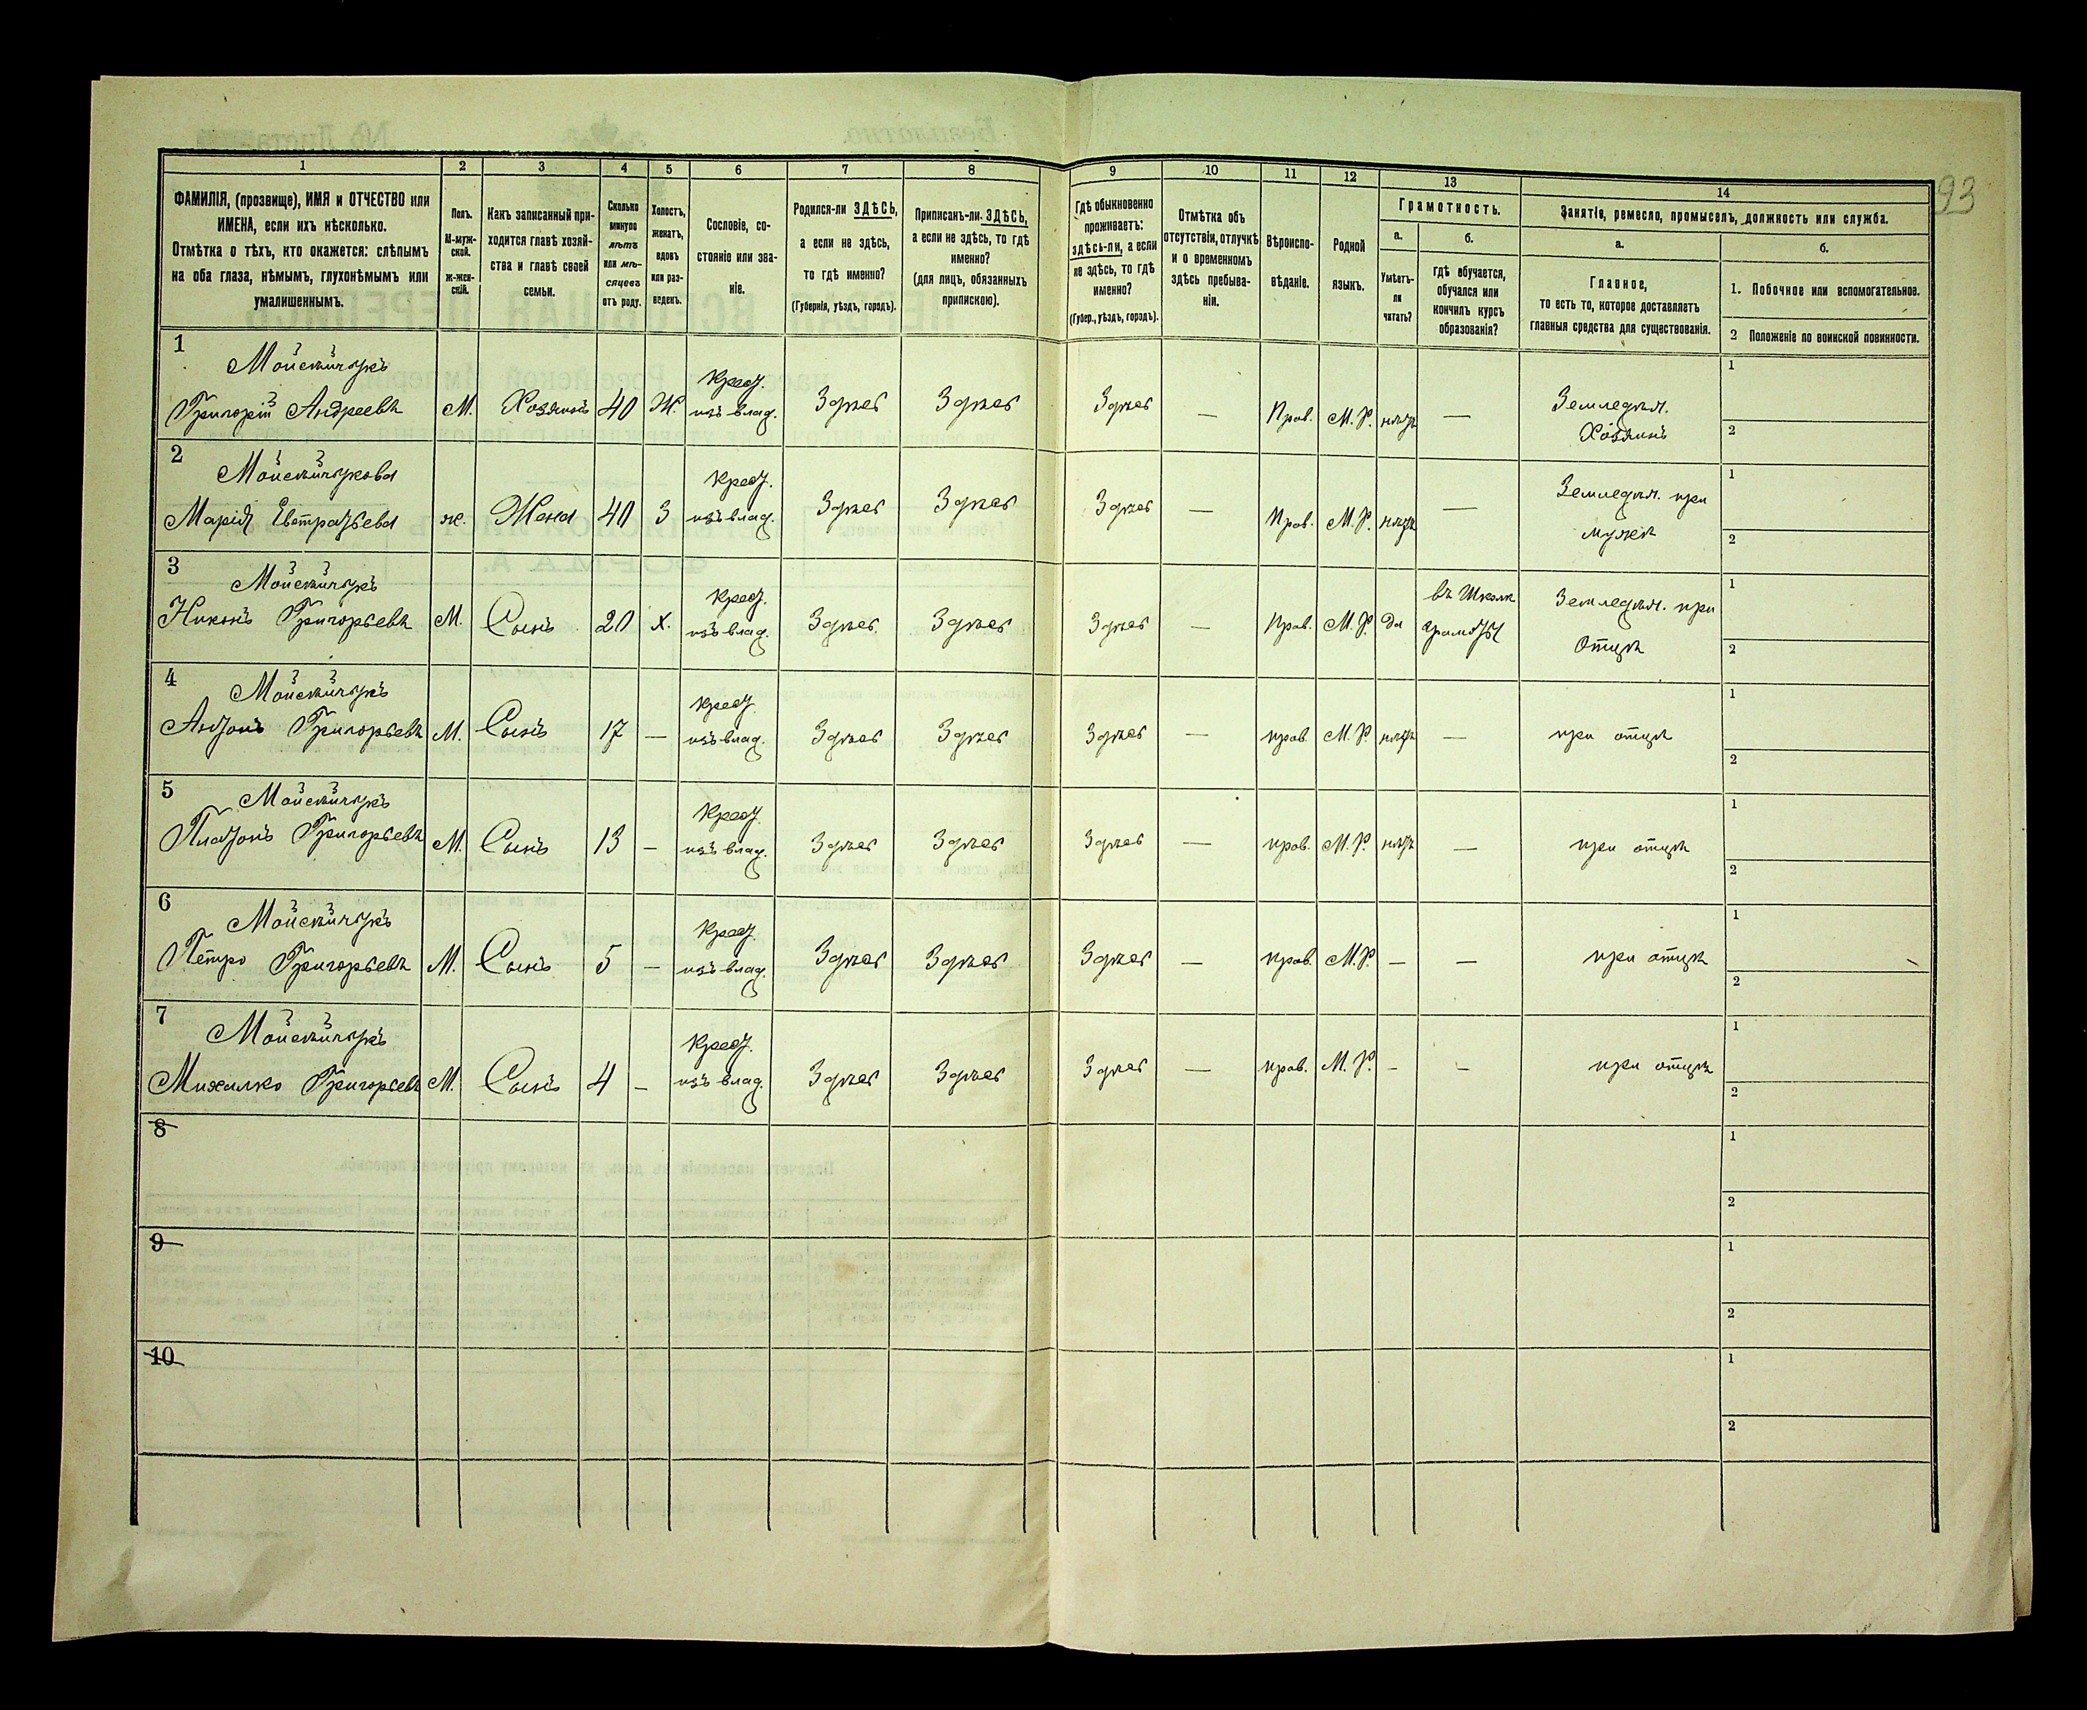 93
1 2 3 4 5 6 7 8 9 10 11 12 13 14
ФАМИЛІЯ, (прозвище), ИМЯ и ОТЧЕСТВО или
ИМЕНА, если ихъ нѣсколько.
Отмѣтка о тѣхъ, кто окажется: слѣпымъ
на оба глаза, нѣмымъ, глухонѣмымъ или
умалишеннымъ.
Полъ.
М-муж-
ской.
ж-жен-
скій.
Какъ записанный при-
ходится главѣ хозяй-
ства и главѣ своей
семьи.
Сколько
минуло
лѣтъ
или мѣ-
сяцевъ
отъ роду.
Холостъ,
женатъ,
вдовъ
или раз-
веденъ.
Сословіе, со-
стояніе или зва-
ніе.
Родился-ли ЗДѢСЬ,
а если не здѣсь,
то гдѣ именно?
(Губернія, уѣздъ, городъ).
Приписанъ-ли ЗДѢСЬ,
а если не здѣсь, то гдѣ
именно?
(для лицъ, обязанныхъ
припискою).
Гдѣ обыкновенно
проживаетъ:
здѣсь-ли, а если
не здѣсь, то гдѣ
именно?
(Губер., уѣздъ, городъ).
Отмѣтка объ
отсутствіи, отлучкѣ
и о временномъ
здѣсь пребыва-
ніи.
Вѣроиспо-
вѣданіе.
Родной
языкъ.
Грамотность.
а.
Умѣетъ-
ли
читать?
б.
Гдѣ обучается,
обучался или
кончилъ курсъ
образованія?
Занятіе, ремесло, промыселъ, должность или служба.
а.
Главное,
то есть то, которое доставляетъ
главныя средства для существованія.
б.
1. Побочное или вспомогательное.
2 Положеніе по воинской повинности.
1
Григорій Андреевъ М. Хозяинъ 40 Ж. Крест. изъ влад. Здѣсь Здѣсь Здѣсь — Прав. М. Р. нѣтъ — Земледѣл. Хозяинъ
1
2
2
Марія Евтратьева ж. Жена 40 З Крест. изъ влад. Здѣсь Здѣсь Здѣсь — Прав. М. Р. нѣтъ — Земледѣл. при мужѣ
1
2
3
Никонъ Григорьевъ М. Сынъ 20 х. Крест. изъ влад. Здѣсь Здѣсь Здѣсь — Прав. М. Р. да въ Школѣ грамоты Земледѣл. при Отцѣ
1
2
4
Антонъ Григорьевъ М. Сынъ 17 — Крест. изъ влад. Здѣсь Здѣсь Здѣсь — прав. М. Р. нѣтъ — при отцѣ
1
2
5
Платонъ Григорьевъ М. Сынъ 13 — Крест. изъ влад. Здѣсь Здѣсь Здѣсь — прав. М. Р. нѣтъ — при отцѣ
1
2
6
Петро Григорьевъ М. Сынъ 5 — Крест. изъ влад. Здѣсь Здѣсь Здѣсь — прав. М. Р. — — при отцѣ
1
2
7
Михалко Григорьевъ М. Сынъ 4 — Крест. изъ влад. Здѣсь Здѣсь Здѣсь — прав. М. Р. — — при отцѣ
1
2
8
1
2
9
1
2
10
1
2